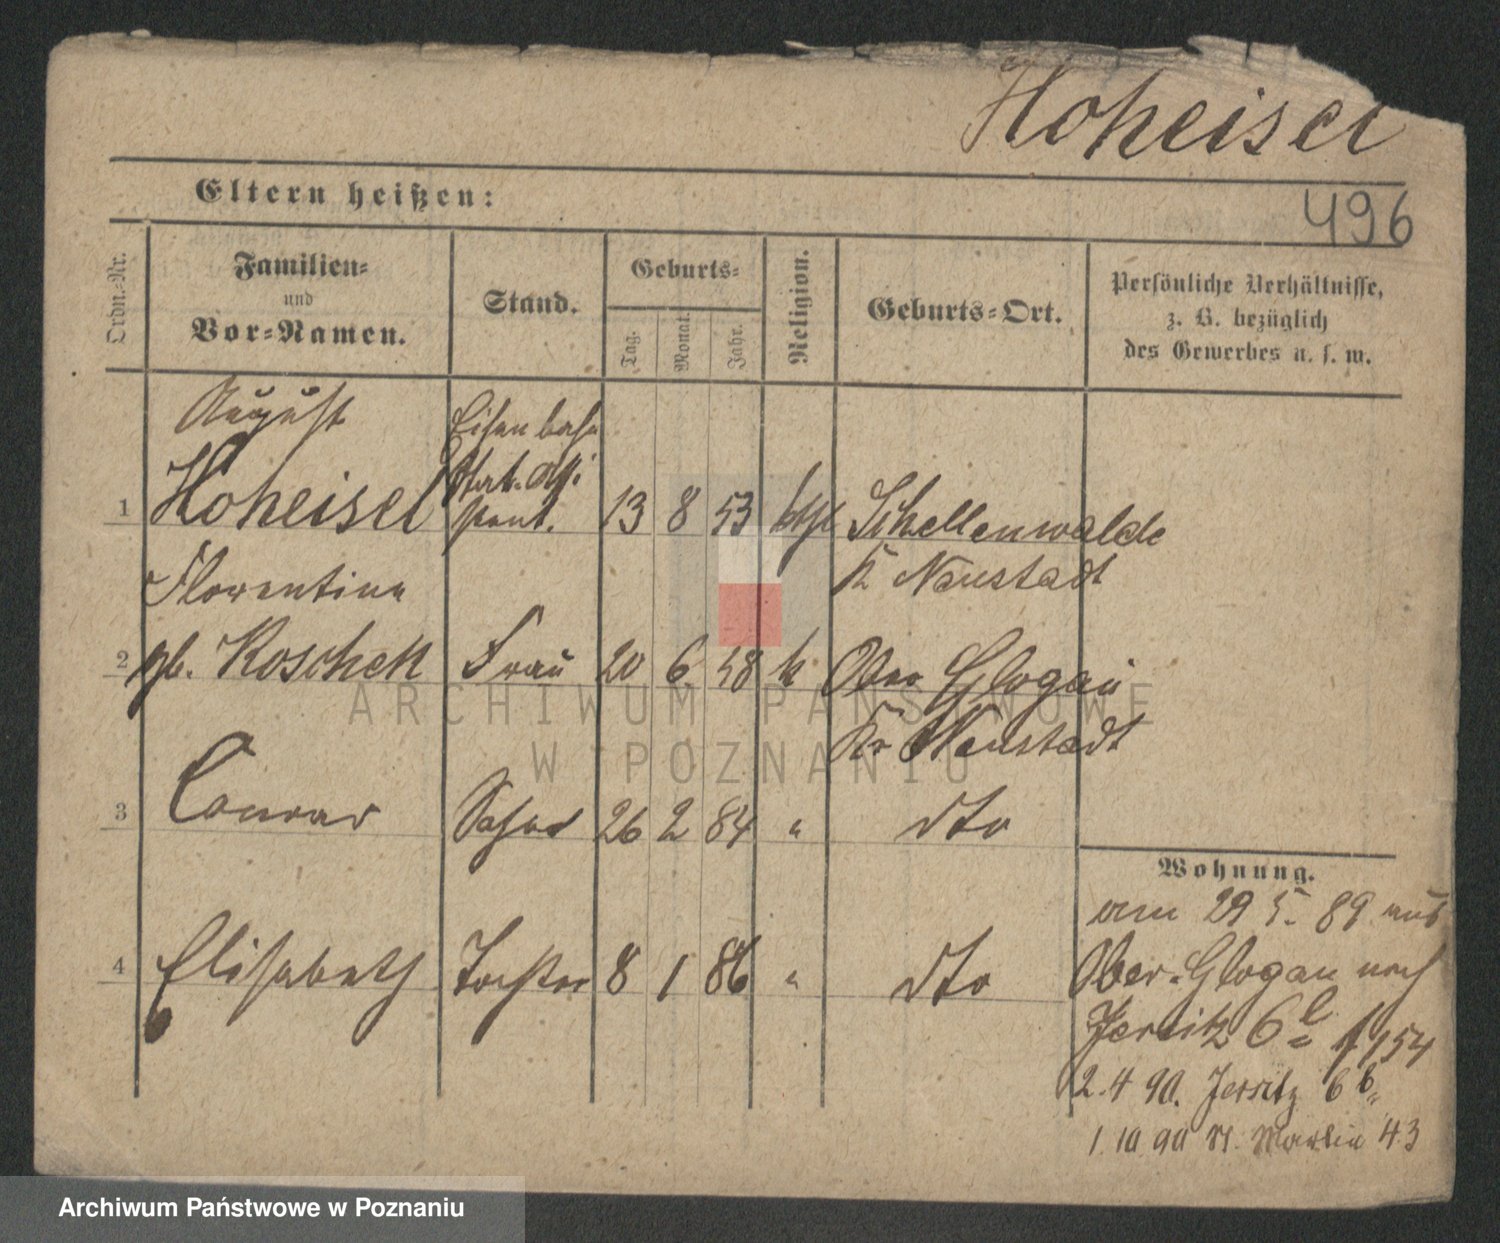 Hoheisel
Eltern heißen:
496
Ordn.-Nr.
Familien-
und
Vor-Namen.
Stand.
Geburts-
Tag.
Monat.
Jahr.
Religion.
Geburts-Ort.
Persönliche Verhältnisse,
z. B. bezüglich
des Gewerbes u. s. w.
August
Eisenbahn
1 Hoheisel 13 8 53 kthl Schellenwalde
K Neustadt
Florentine
2 gb. Koschek Frau 20 6 58 k Ober Glogau
Kr Neustadt
3 Conrad Sohn 26 2 84 " dto
4 Elisabeth Tochter 8 1 86 " dto
Wohnung.
am 29 5. 89 aus
Ober-Glogau nach
Jersitz 6 154
2.4 90. Jersitz 6 b
1. 10 90 St. Martin 43
ARCHIWUM PAŃSTWOWE
W POZNANIU
Archiwum Państwowe w Poznaniu